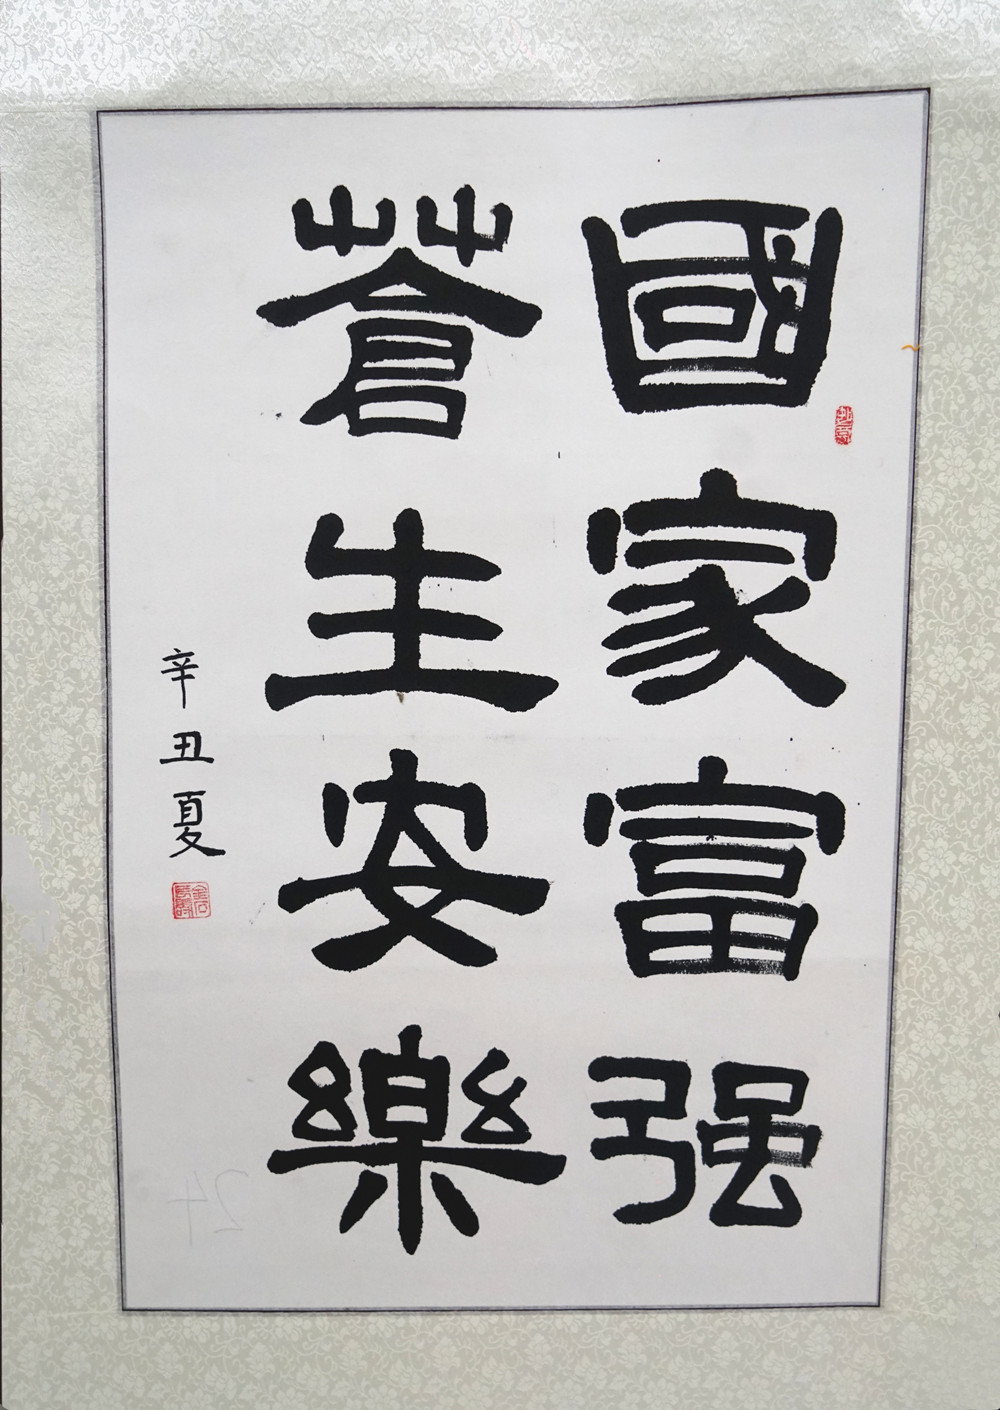 國家富强
蒼生安樂
辛丑夏
24